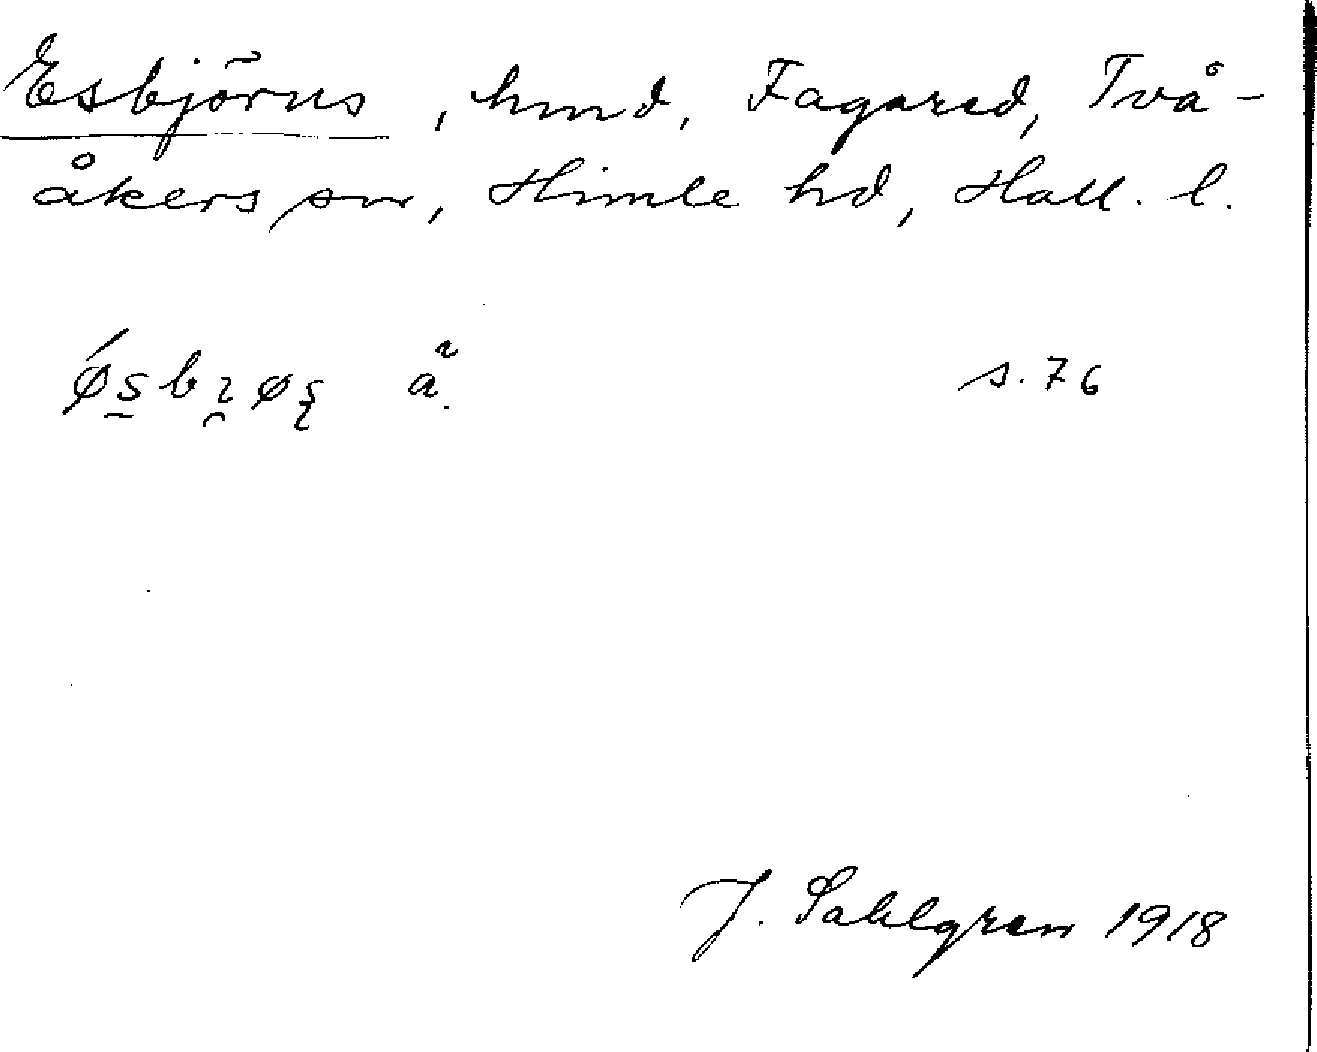 Esbjörns, hmd, Fagared, Två-
åkers sn, Himle hd, Hall. l.
s. 76
J. Sahlgren 1918